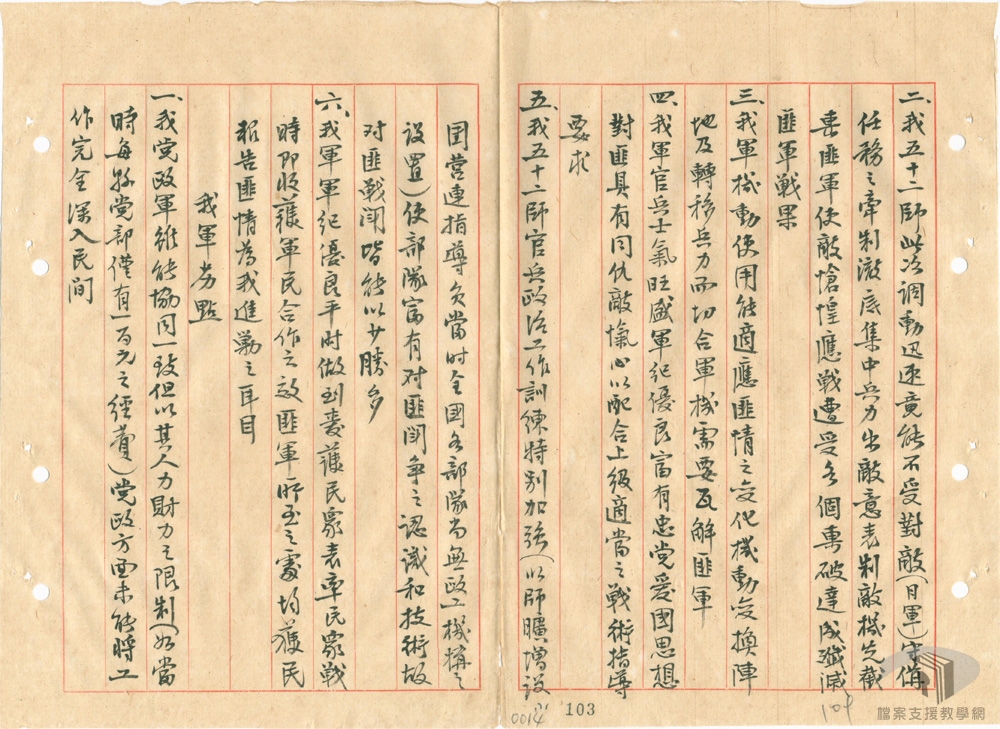 二、我五十二師此次調動迅速竟能不受對敵(日軍)守備
任務之牽制澈底集中兵力出敵意表制敵機先截
擊匪軍使敵愴惶應戰遭受各個專破達成殲滅
匪軍戰果
三、我軍機動使用能適應匪情之变化機動变換陣
地及轉移兵力而切合軍機需要瓦解匪軍
四、我軍官兵士氣旺盛軍紀優良富有忠党爱國思想
對匪具有同仇敵愾心以配合上級適當之戰術指導
要求
五、我五十二師官兵政治工作訓練特別加强(以師曠增設
團营連指導员當时全國各部隊尚無政工機構之
設置)使部隊富有对匪鬭争之認識和技術故
对匪戰鬭皆能以少勝多
六、我軍軍紀優良平时做到爱護民眾表率民眾戰
時即收穫軍民合作之效匪軍所至之處均獲民
報告匪情為我進勦之耳目
我軍劣點
一、我党政軍雖能協同一致但以其人力財力之限制(如當
時每縣党部僅有一百元之經費)党政方面未能將工
作完全深入民間
0014
103
104
檔案支援教學網